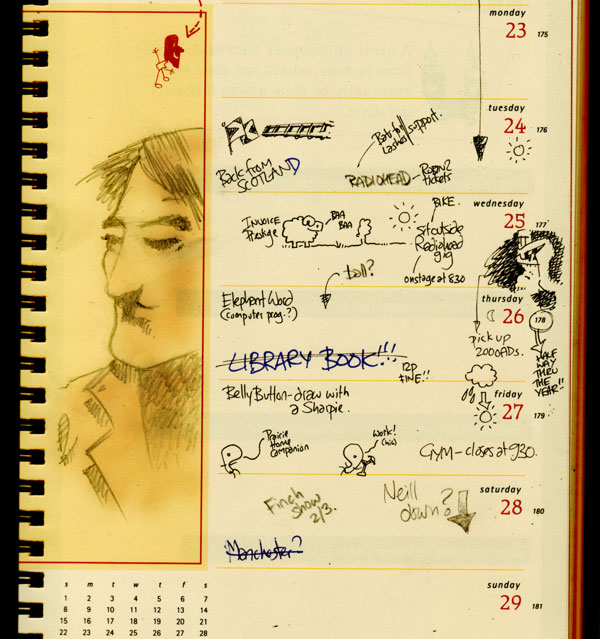 monday
23 175
tuesday
24 176
Back from
SCOTLAND
RADIOHEAD
tickets
wednesday
25 177
INVOICE
BAA
BAA
BIKE.
Sit outside
Radiohead
gig
onstage at 830
tall?
Elephant Word
(computer prog.?)
thursday
26 178
pick up
2000ADs.
HALF
WAY
THRU
THE
YEAR!!
LIBRARY BOOK!!!
12p
FINE!!
Belly Button - draw with
a Sharpie.
friday
27 179
Prairie
Home
Companion
Work!
(hic)
GYM - closes at 930.
saturday
28 180
Finch
show
2/3.
Neill
down?
Manchester?
sunday
29 181
s m t w t f s
1 2 3 4 5 6 7
8 9 10 11 12 13 14
15 16 17 18 19 20 21
22 23 24 25 26 27 28